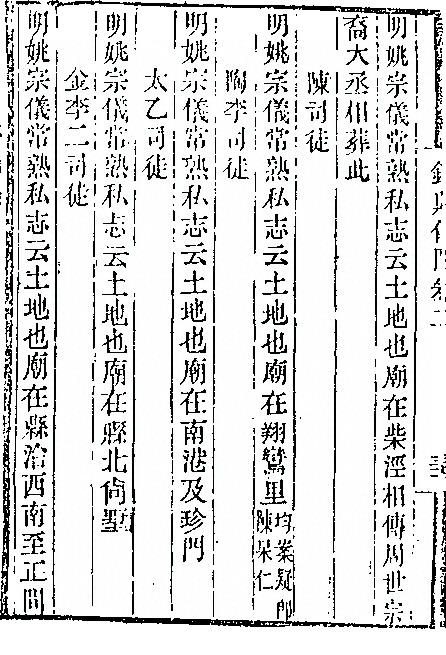 明姚宗儀常熟私志云土地也廟在柴涇相傳周世宗
裔大丞相葬此
陳司徒
明姚宗儀常熟私志云土地也廟在翔鸞里均業疑即陳杲仁
陶李司徒
明姚宗儀常熟私志云土地也廟在南港及珍門
太乙司徒
明姚宗儀常熟私志云土地也廟在縣北尚墅
金李二司徒
明姚宗儀常熟私志云土地也廟在縣治西南至正間